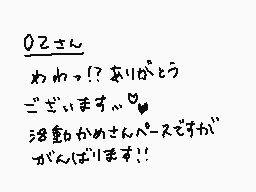 OZさん
わわっ!?ありがとう
ございます…♡♥
活動かめさんペースですが
がんばります!!